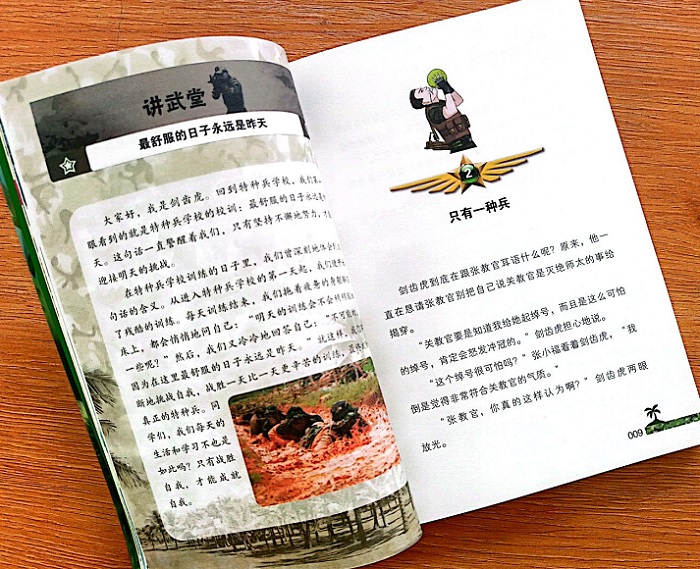 讲武堂
最舒服的日子永远是昨天
大家好，我是剑齿虎。回到特种兵学校，我们
眼看到的就是特种兵学校的校训：最舒服的日子永远是
天。这句话一直警醒着我们，只有坚持不懈地努力，才
迎接明天的挑战。
在特种兵学校训练的日子里，我们曾深刻地体会
句话的含义。从进入特种兵学校的第一天起，我们便
了残酷的训练。每天训练结束，我们拖着疲惫的身躯
床上，都会悄悄地问自己：“明天的训练会不会稍稍
一些呢？”然后，我们又冷冷地回答自己：“不可能
因为在这里最舒服的日子永远是昨天。”就这样，我们
断地挑战自我，战胜一天比一天更辛苦的训练，最终
真正的特种兵。同
学们，我们每天的
生活和学习不也是
如此吗？只有战胜
自我，才能成就
自我。
2
只有一种兵
剑齿虎到底在跟张教官耳语什么呢？原来，他一
直在恳请张教官别把自己说关教官是灭绝师太的事给
揭穿。
“关教官要是知道我给她起绰号，而且是这么可怕
的绰号，肯定会怒发冲冠的。”剑齿虎担心地说。
“这个绰号很可怕吗？”张小福看着剑齿虎，“我
倒是觉得非常符合关教官的气质。”
“张教官，你真的这样认为啊？”剑齿虎两眼
放光。
009